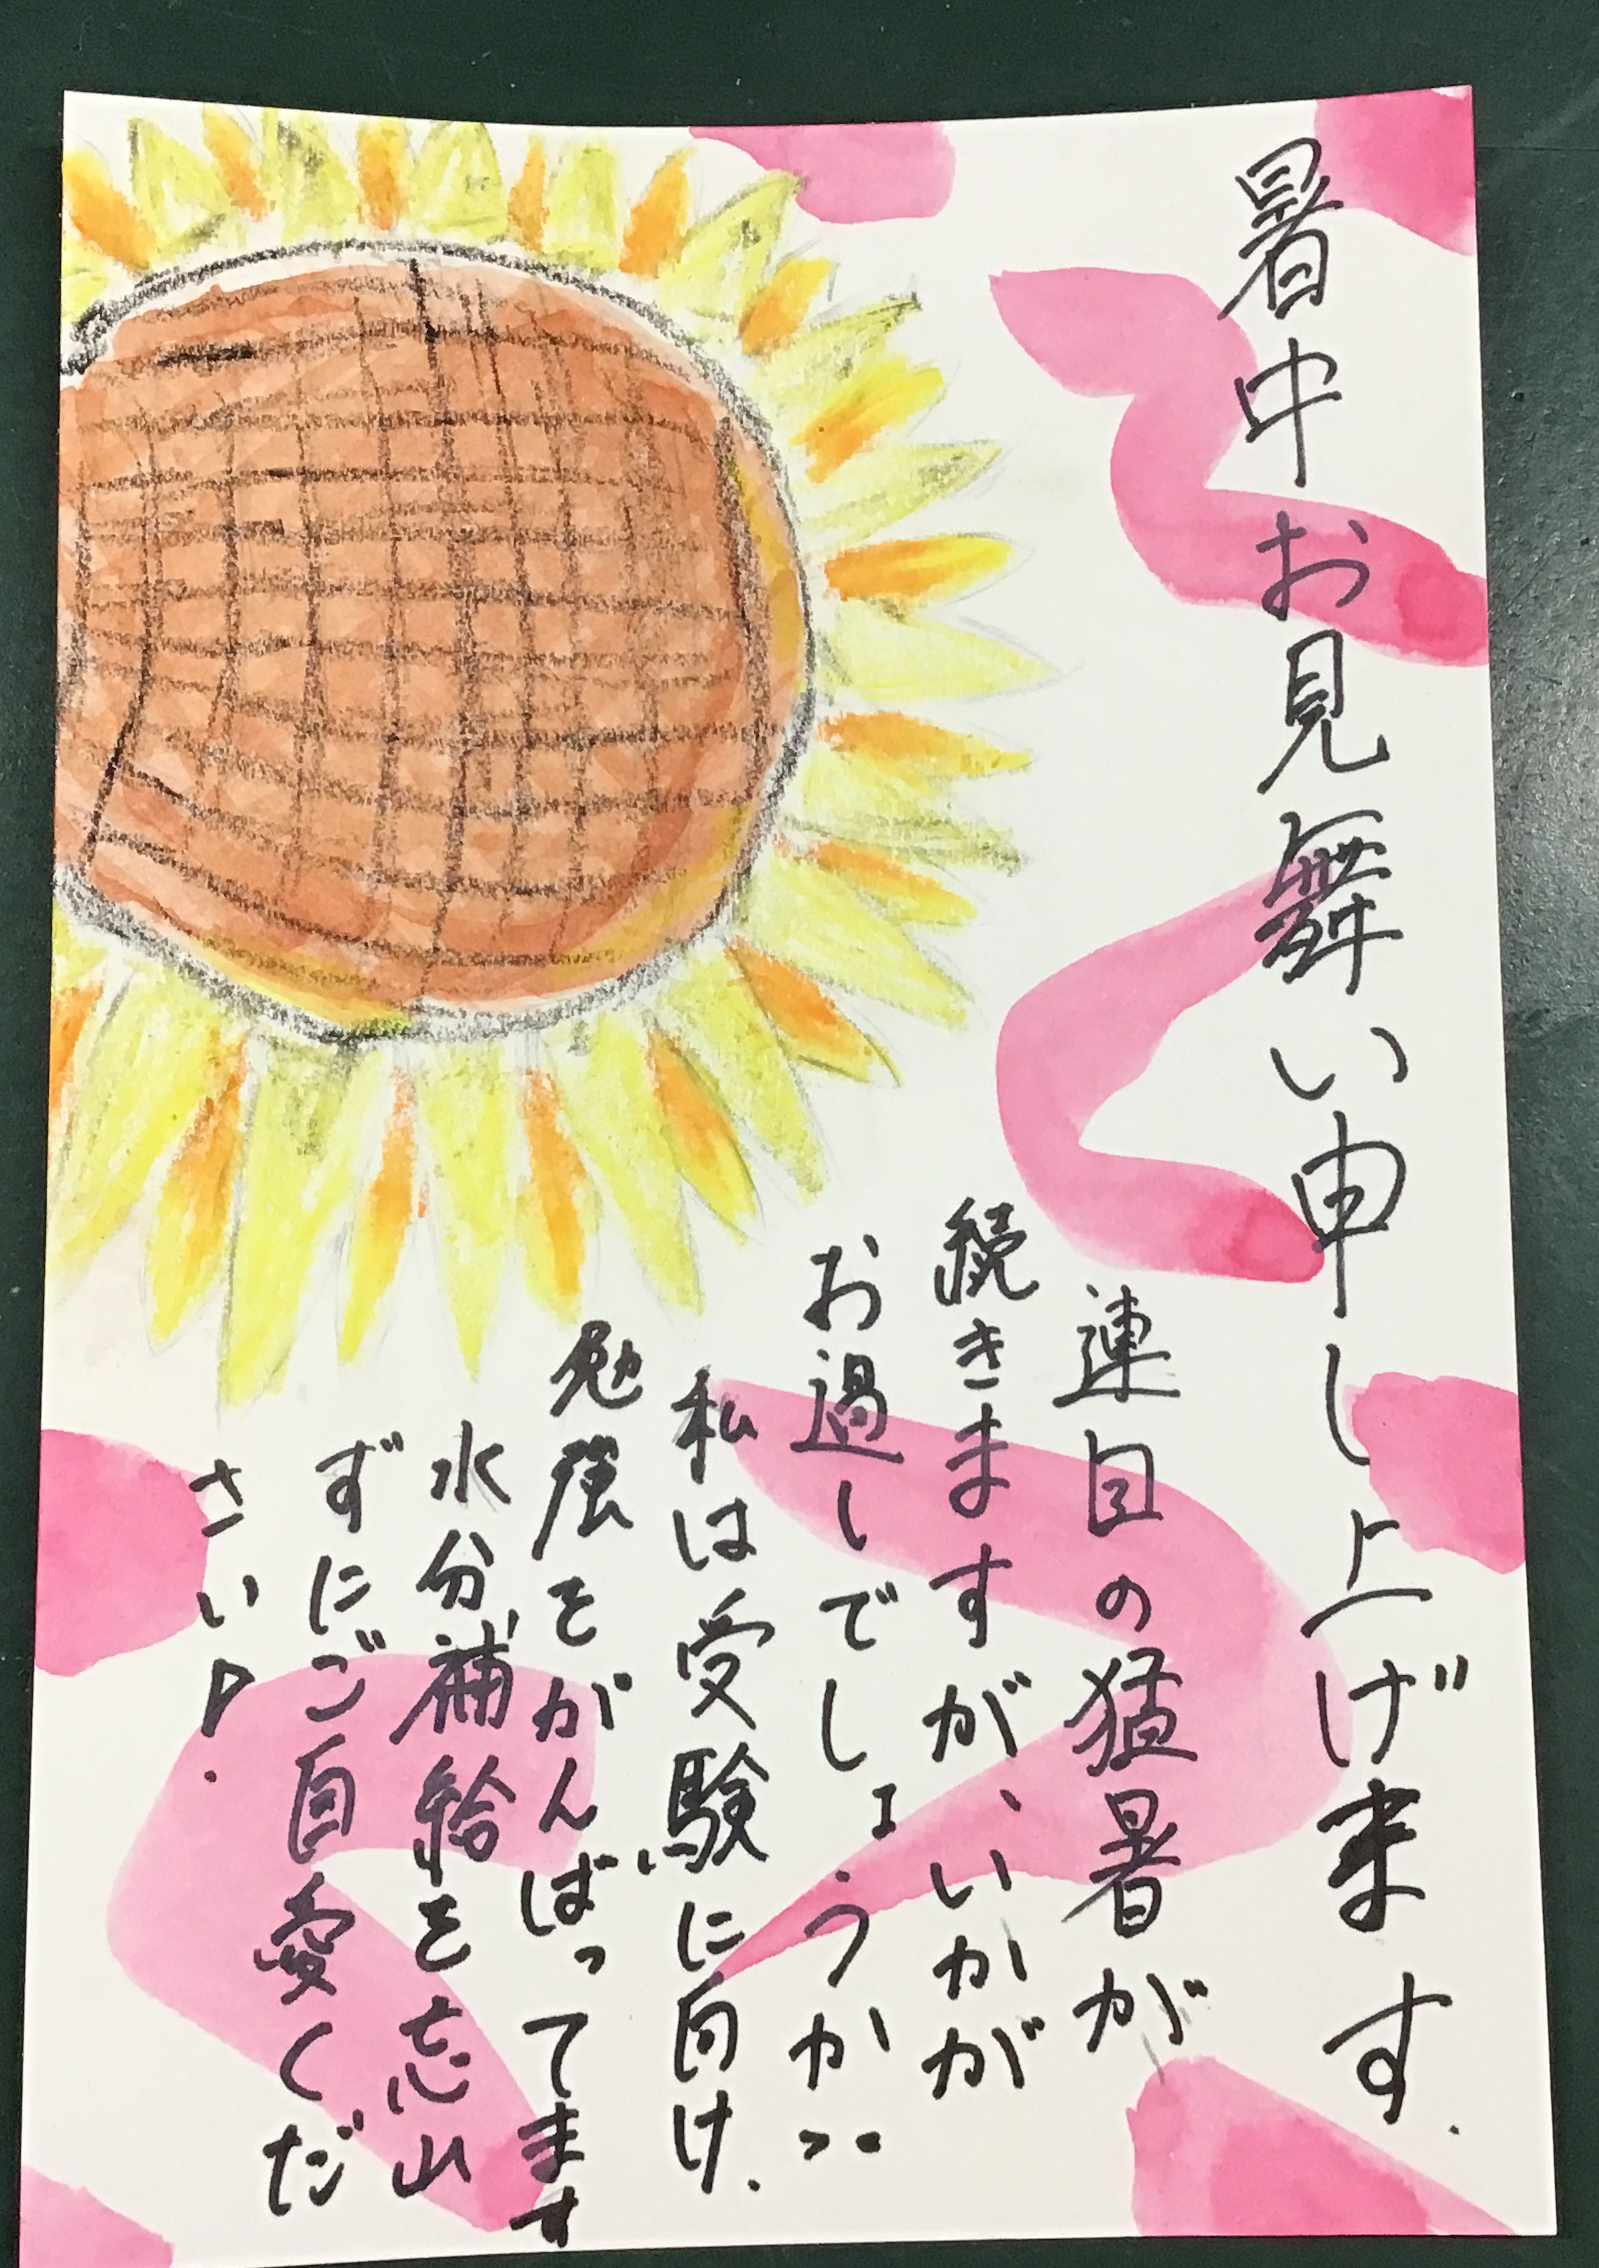 暑中お見舞い申し上げます.
連日の猛暑が
続きますが、いかが
お過しでしょうか
私は受験に向け、
勉強をがんばってます
水分補給を忘山
ずにご自愛くだ
さい♪.